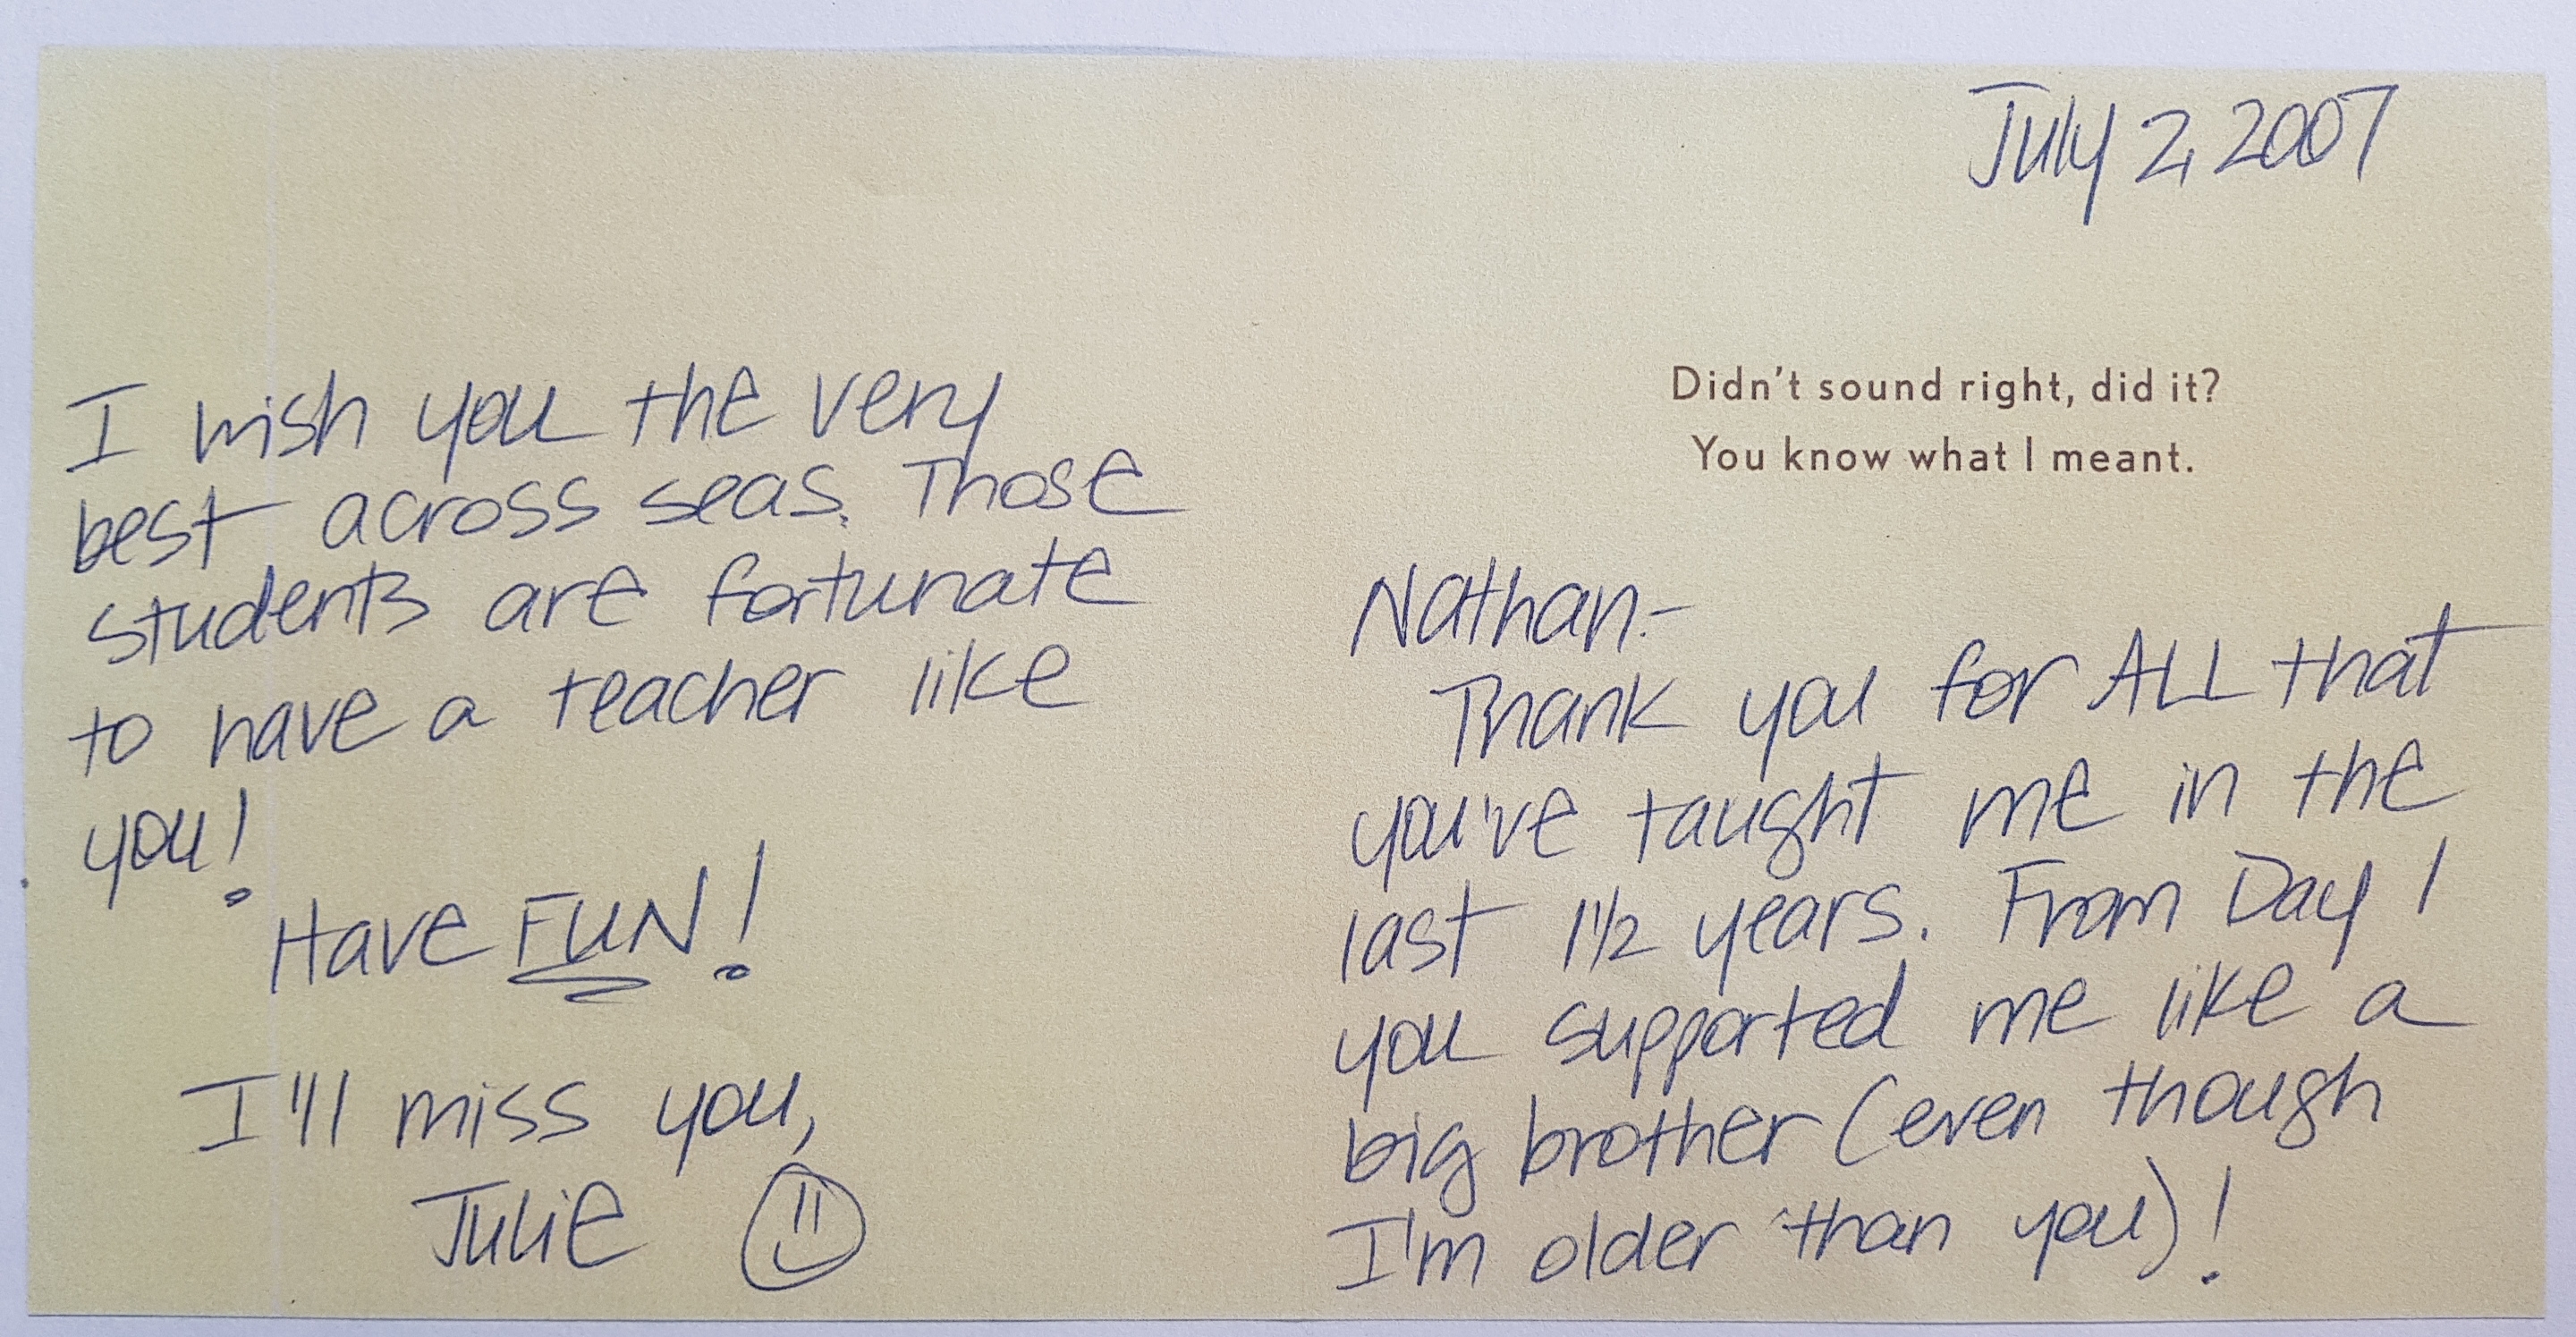 I wish you the very
best across seas. Those
students are fortunate
to have a teacher like
you!
Have FUN!
I'll miss you,
Julie
July 2, 2007
Didn't sound right, did it?
You know what I meant.
Nathan-
Thank you for ALL that
you've taught me in the
last 1½ years. From Day 1
you supported me like a
big brother (even though
I'm older than you)!